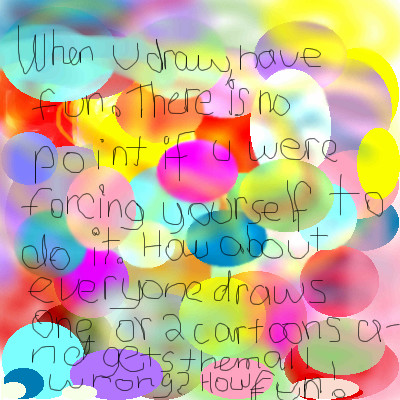 When u draw, have
fun. There is no
point if u were
forcing yourself to
do it. How about
everyone draws
one or 2 cartoons a-
nd gets them all
wrong? How fun!